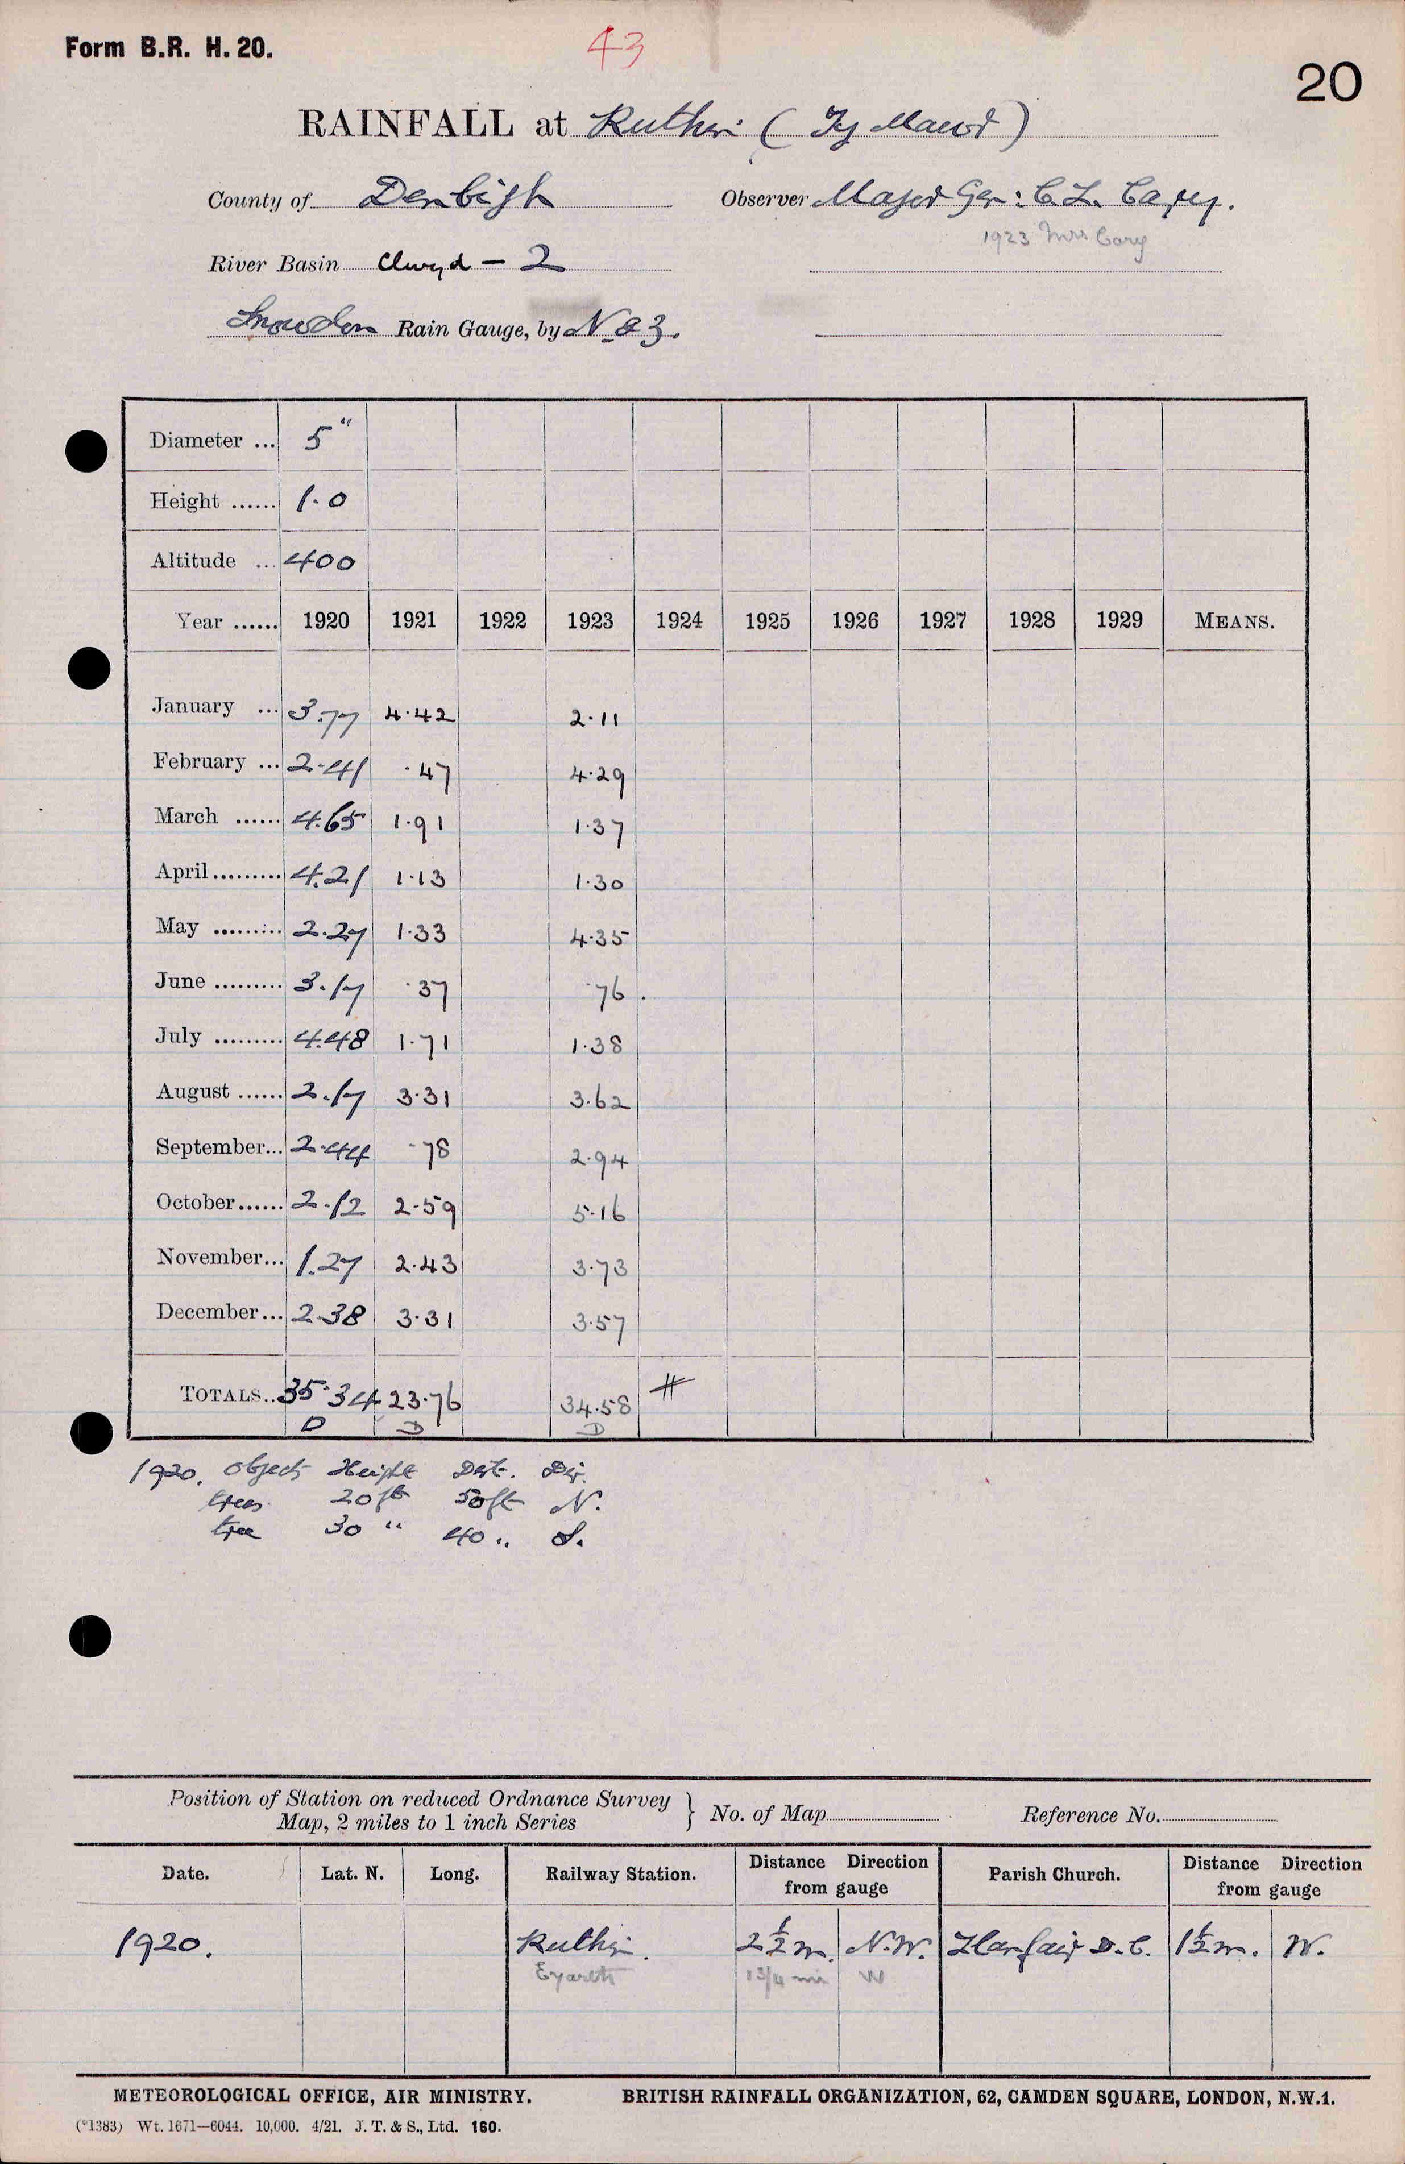 Form B.R. H. 20.
43
20
RAINFALL at Ruthin (Ty Mawr)
County of Denbigh Observer Major Gen: C. L. Carey.
1923 Mrs Cary
River Basin Clwyd - 2
Snowdon Rain Gauge, by N & Z.
Diameter ... 5"
Height ...... 1.0
Altitude ... 400
Year ...... 1920 1921 1922 1923 1924 1925 1926 1927 1928 1929 MEANS.
January ... 3.77 4.42 2.11
February ... 2.41 .47 4.29
March ...... 4.65 1.91 1.37
April......... 4.21 1.13 1.30
May ......... 2.27 1.33 4.35
June ......... 3.17 .37 .76
July ......... 4.48 1.71 1.38
August ...... 2.17 3.31 3.62
September... 2.44 .78 2.94
October...... 2.12 2.59 5.16
November... 1.27 2.43 3.73
December... 2.38 3.31 3.57
TOTALS.. 35.34 23.76 34.58 #
D D D
1920. Object Height Dist. Dir.
trees 20 ft 50 ft N.
tree 30 " 40 " S.
Position of Station on reduced Ordnance Survey
Map, 2 miles to 1 inch Series } No. of Map Reference No.
Date. Lat. N. Long. Railway Station. Distance Direction from gauge Parish Church. Distance Direction from gauge
1920. Ruthin. 2½ m. N.W. Llanfair D.C. 1½ m. W.
Eyarth 1 3/4 mi W
METEOROLOGICAL OFFICE, AIR MINISTRY. BRITISH RAINFALL ORGANIZATION, 62, CAMDEN SQUARE, LONDON, N.W.1.
(*1383) Wt. 1671—6044. 10,000. 4/21. J. T. & S., Ltd. 160.